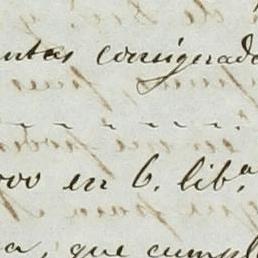 ntas consignado
000 en 6. lib.ª
a, que cumpl